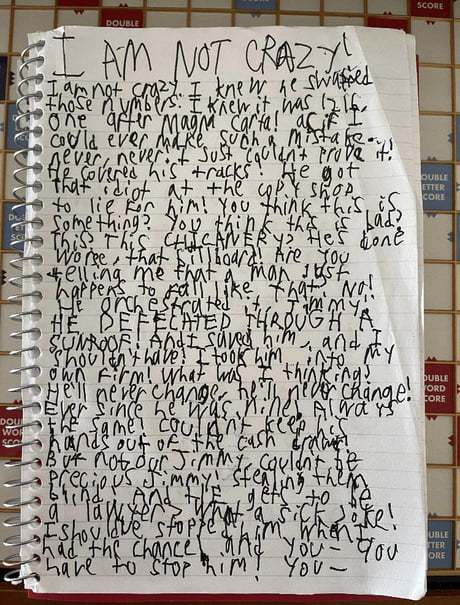 DOUBLE
SCORE
SCORE
I AM NOT CRAZY!
I am not crazy! I knew he swapped
those numbers! I knew it was 1216.
one after Magna Carta! as if I
could ever make such a mistake.
never, never! I just couldnt prove it!
He covered his tracks! He got
that idiot at the copy shop
to lie for him! You think this is
something? You think this is bad?
this? This CHICANERY? He's done
worse, that billboard! Are you
telling me that a man just
happens to fall like that? No!
He orchestrated it! Jimmy!
HE DEFECATED THROUGH A
SUNROOF! And I saved him, and I
shouldn't have! I took him into my
own firm! What was I thinking?
He'll never change, he'll never change!
Ever since he was nine! Always
the same! couldnt keep his
hands out of the cash drawer!
But not our Jimmy! couldnt be
precious Jimmy! stealing them
blind. And HE gets to be
a lawyer? What a sick joke!
I should've stopped him when I
had the chance! and you— you
have to stop him! You—
DOUBLE
LETTER
SCORE
DOUBLE
WORD
SCORE